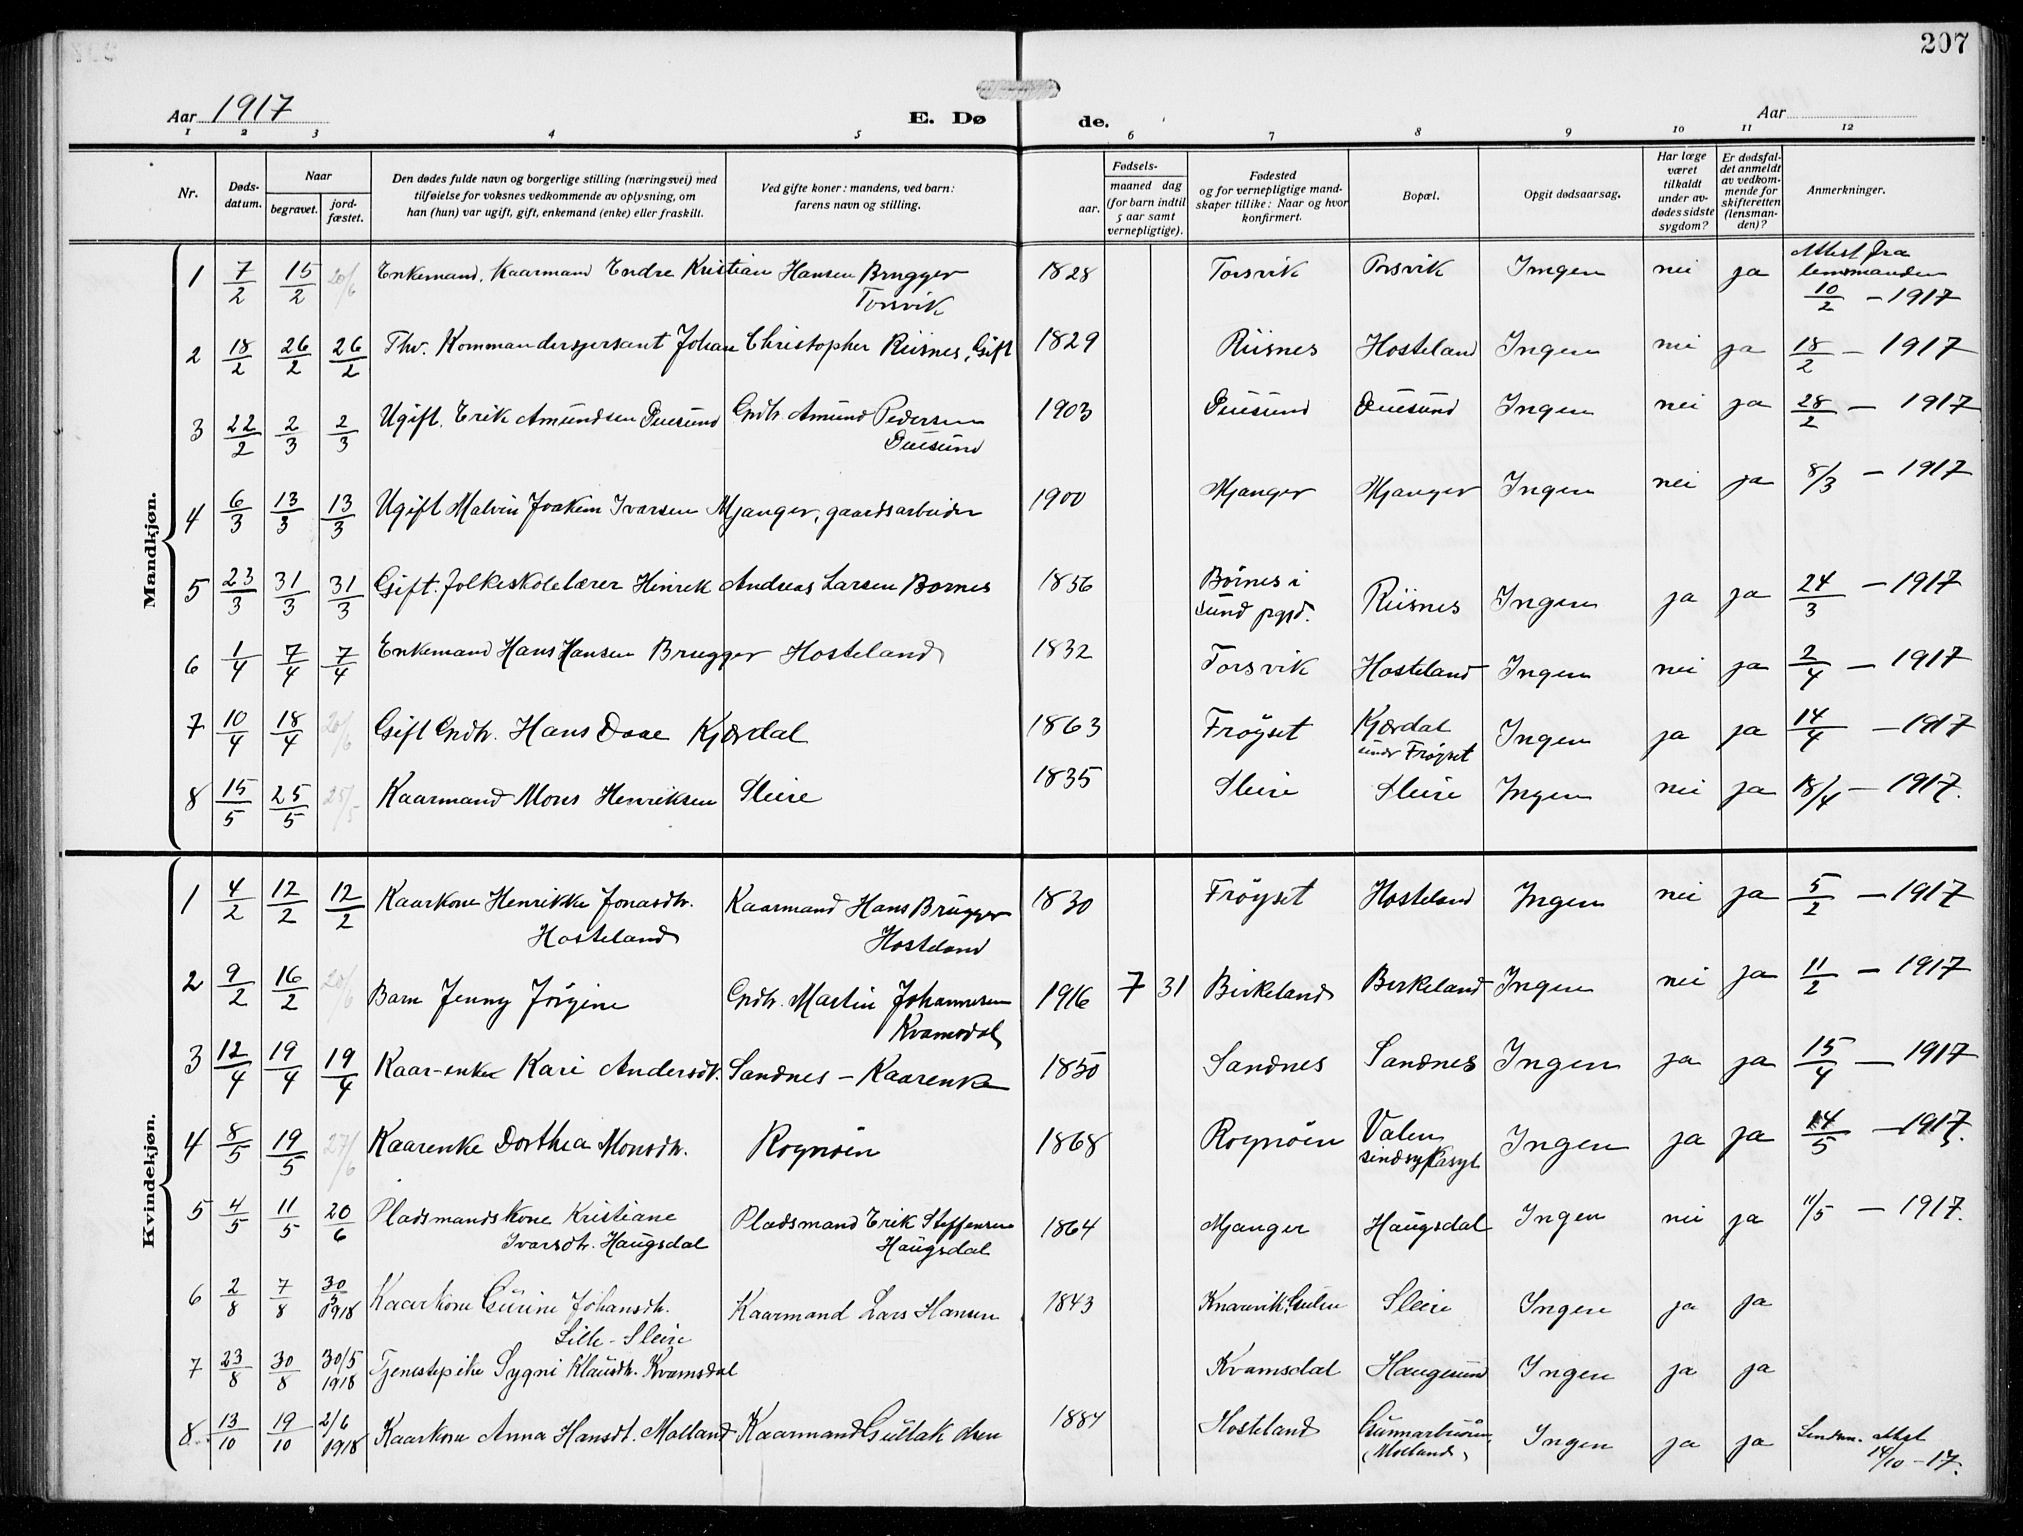 207
Aar 1917
E. Dø
de.
Aar
1 2 3 4 5 6 7 8 9 10 11 12
Nr.
Døds-
datum.
Naar
begravet.
jord-
fæstet.
Den dødes fulde navn og borgerlige stilling (næringsvei) med
tilføielse for voksnes vedkommende av oplysning, om
han (hun) var ugift, gift, enkemand (enke) eller fraskilt.
Ved gifte koner: mandens, ved barn:
farens navn og stilling.
Fødsels-
aar.
maaned dag
(for barn indtil
5 aar samt
vernepligtige).
Fødested
og for vernepligtige mand-
skaper tillike: Naar og hvor
konfirmert.
Bopæl.
Opgit dødsaarsag.
Har læge
været
tilkaldt
under av-
dødes sidste
sygdom?
Er dødsfal-
det anmeldt
av vedkom-
mende for
skifteretten
(lensman-
den)?
Anmerkninger.
Mandkjøn.
1 7/2 15/2 20/6 Enkemand, Kaarmand Endre Kristian Hansen Brugger 1828 Torsvik Torsvik Ingen nei ja Attest fra
Torsvik lensmanden
10/2 - 1917
2 18/2 26/2 26/2 Thv. Kommandersersant Johan Christopher Riisnes, Gift 1829 Riisnes Hosteland Ingen nei ja 18/2 - 1917
3 22/2 2/3 2/3 Ugift. Erik Amundsen Duesund Grdbr. Amund Pedersen 1903 Duesund Duesund Ingen nei ja 28/2 - 1917
Duesund
4 6/3 13/3 13/3 Ugift Malvin Joakim Ivarsen Mjanger, gaardsarbeider 1900 Mjanger Mjanger Ingen nei ja 8/3 - 1917
5 23/3 31/3 31/3 Gift. folkeskolelærer Hinrik Andreas Larsen Bornes 1856 Börnes i Riisnes Ingen ja ja 24/3 - 1917
Sund pgjd.
6 1/4 7/4 7/4 Enkemand Hans Hansen Brugger Hosteland 1832 Torsvik Hosteland Ingen nei ja 2/4 - 1917
7 10/4 18/4 20/6 Gift Grdbr. Hans Dose Kjærdal 1863 Fröyset Kjærdal Ingen ja ja 14/4 - 1917
under Fröyset
8 15/5 25/5 25/5 Kaarmand Mons Henriksen Sleire 1835 Sleire Sleire Ingen nei ja 18/4 - 1917.
Kvindekjøn.
1 4/2 12/2 12/2 Kaarkone Henrikke Jonasdtr. Kaarmand Hans Brugger 1830 Fröyset Hosteland Ingen nei ja 5/2 - 1917
Hosteland Hosteland
2 9/2 16/2 20/6 Barn Jenny Jörgine Grdbr. Martin Johannesen 1916 7 31 Birkeland Birkeland Ingen nei ja 11/2 - 1917
Kvamsdal
3 12/4 19/4 19/4 Kaar-enke Kari Andersdt. Sandnes - Kaarenke 1850 Sandnes Sandnes Ingen ja ja 15/4 - 1917
4 8/5 19/5 27/6 Kaarenke Dorthea Monsdtr. Rognöin 1868 Rognöin Valen Ingen ja ja 14/5 - 1917.
sindsykasyl
5 4/5 11/5 20/6 Pladsmandskone Kristiane Pladsmand Erik Steffensen 1864 Mjanger Haugsdal Ingen nei ja 11/5 - 1917.
Ivarsdtr. Haugsdal Haugsdal
6 2/8 7/8 30/5 1918 Kaarkone Gurine Johansdtr. Kaarmand Lars Hansen 1843 Knarvik, Gulen Sleire Ingen ja ja
Lille-Sleire
7 23/8 30/8 30/5 1918 Tjenestepike Sygni Klausdtr. Kvamsdal Kvamsdal Haugesund Ingen ja ja
8 13/10 19/10 2/6 1918 Kaarkone Anna Hansdt. Molland Kaarmand Gullak Olsen 1884 Hosteland Gunnarbrøin Ingen ja ja Lendsm. attest
(Molland) 14/10 - 17.